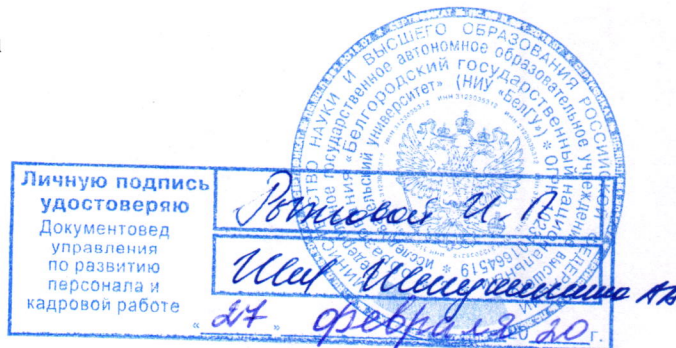 МИНИСТЕРСТВО НАУКИ И ВЫСШЕГО ОБРАЗОВАНИЯ РОССИЙСКОЙ ФЕДЕРАЦИИ
государственное автономное образовательное учреждение высшего
образования «Белгородский государственный национальный
исследовательский университет» (НИУ «БелГУ») * ОГРН
ИНН 3123035312
Личную подпись
удостоверяю
Рыжовой И. П.
Документовед
управления
по развитию
персонала и
кадровой работе
« 27 » февраля 20 20 г.